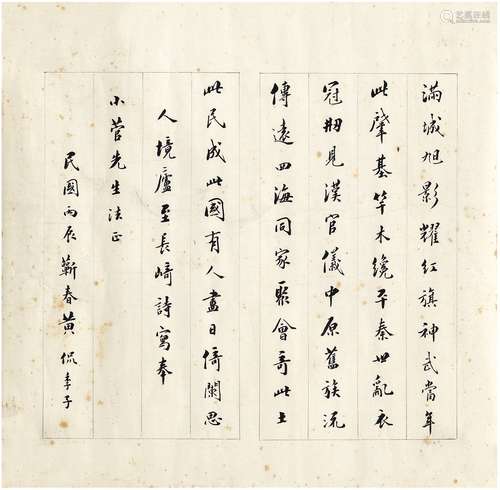 滿城旭影耀紅旗神武當年
此肇基竿木纔平秦世亂衣
冠捌見漢官儀中原舊族流
傳遠四海同家聚會奇此土
此民成此國有人盡日倚闌思
人境廬至長崎詩寫奉
小菅先生法正
民國丙辰蘄春黃侃季子